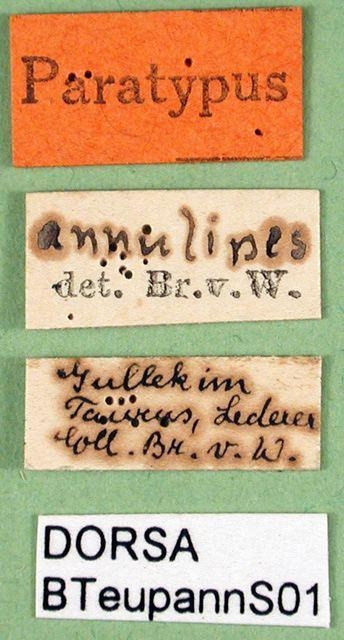 Paratypus
annulipes
det. Br.v.W.
Gullek im
Taurus, Lederer
Coll. Br. v. W.
DORSA
BTeupannS01